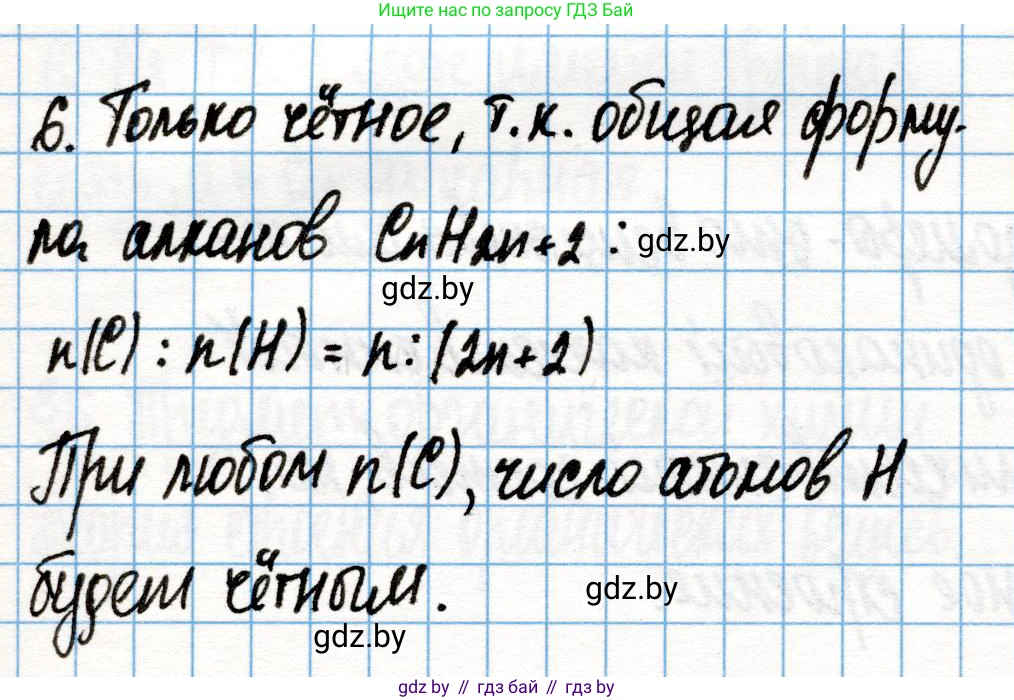 Ищите нас по запросу ГДЗ Бай
6. Только чётное, т.к. общая форму-
ла алканов CnH2n+2 : gdz.by
gdz.by
n(C) : n(H) = n : (2n+2)
При любом n(C), число атомов H
будет чётным. gdz.by
gdz.by
gdz.by // гдз бай // gdz.by